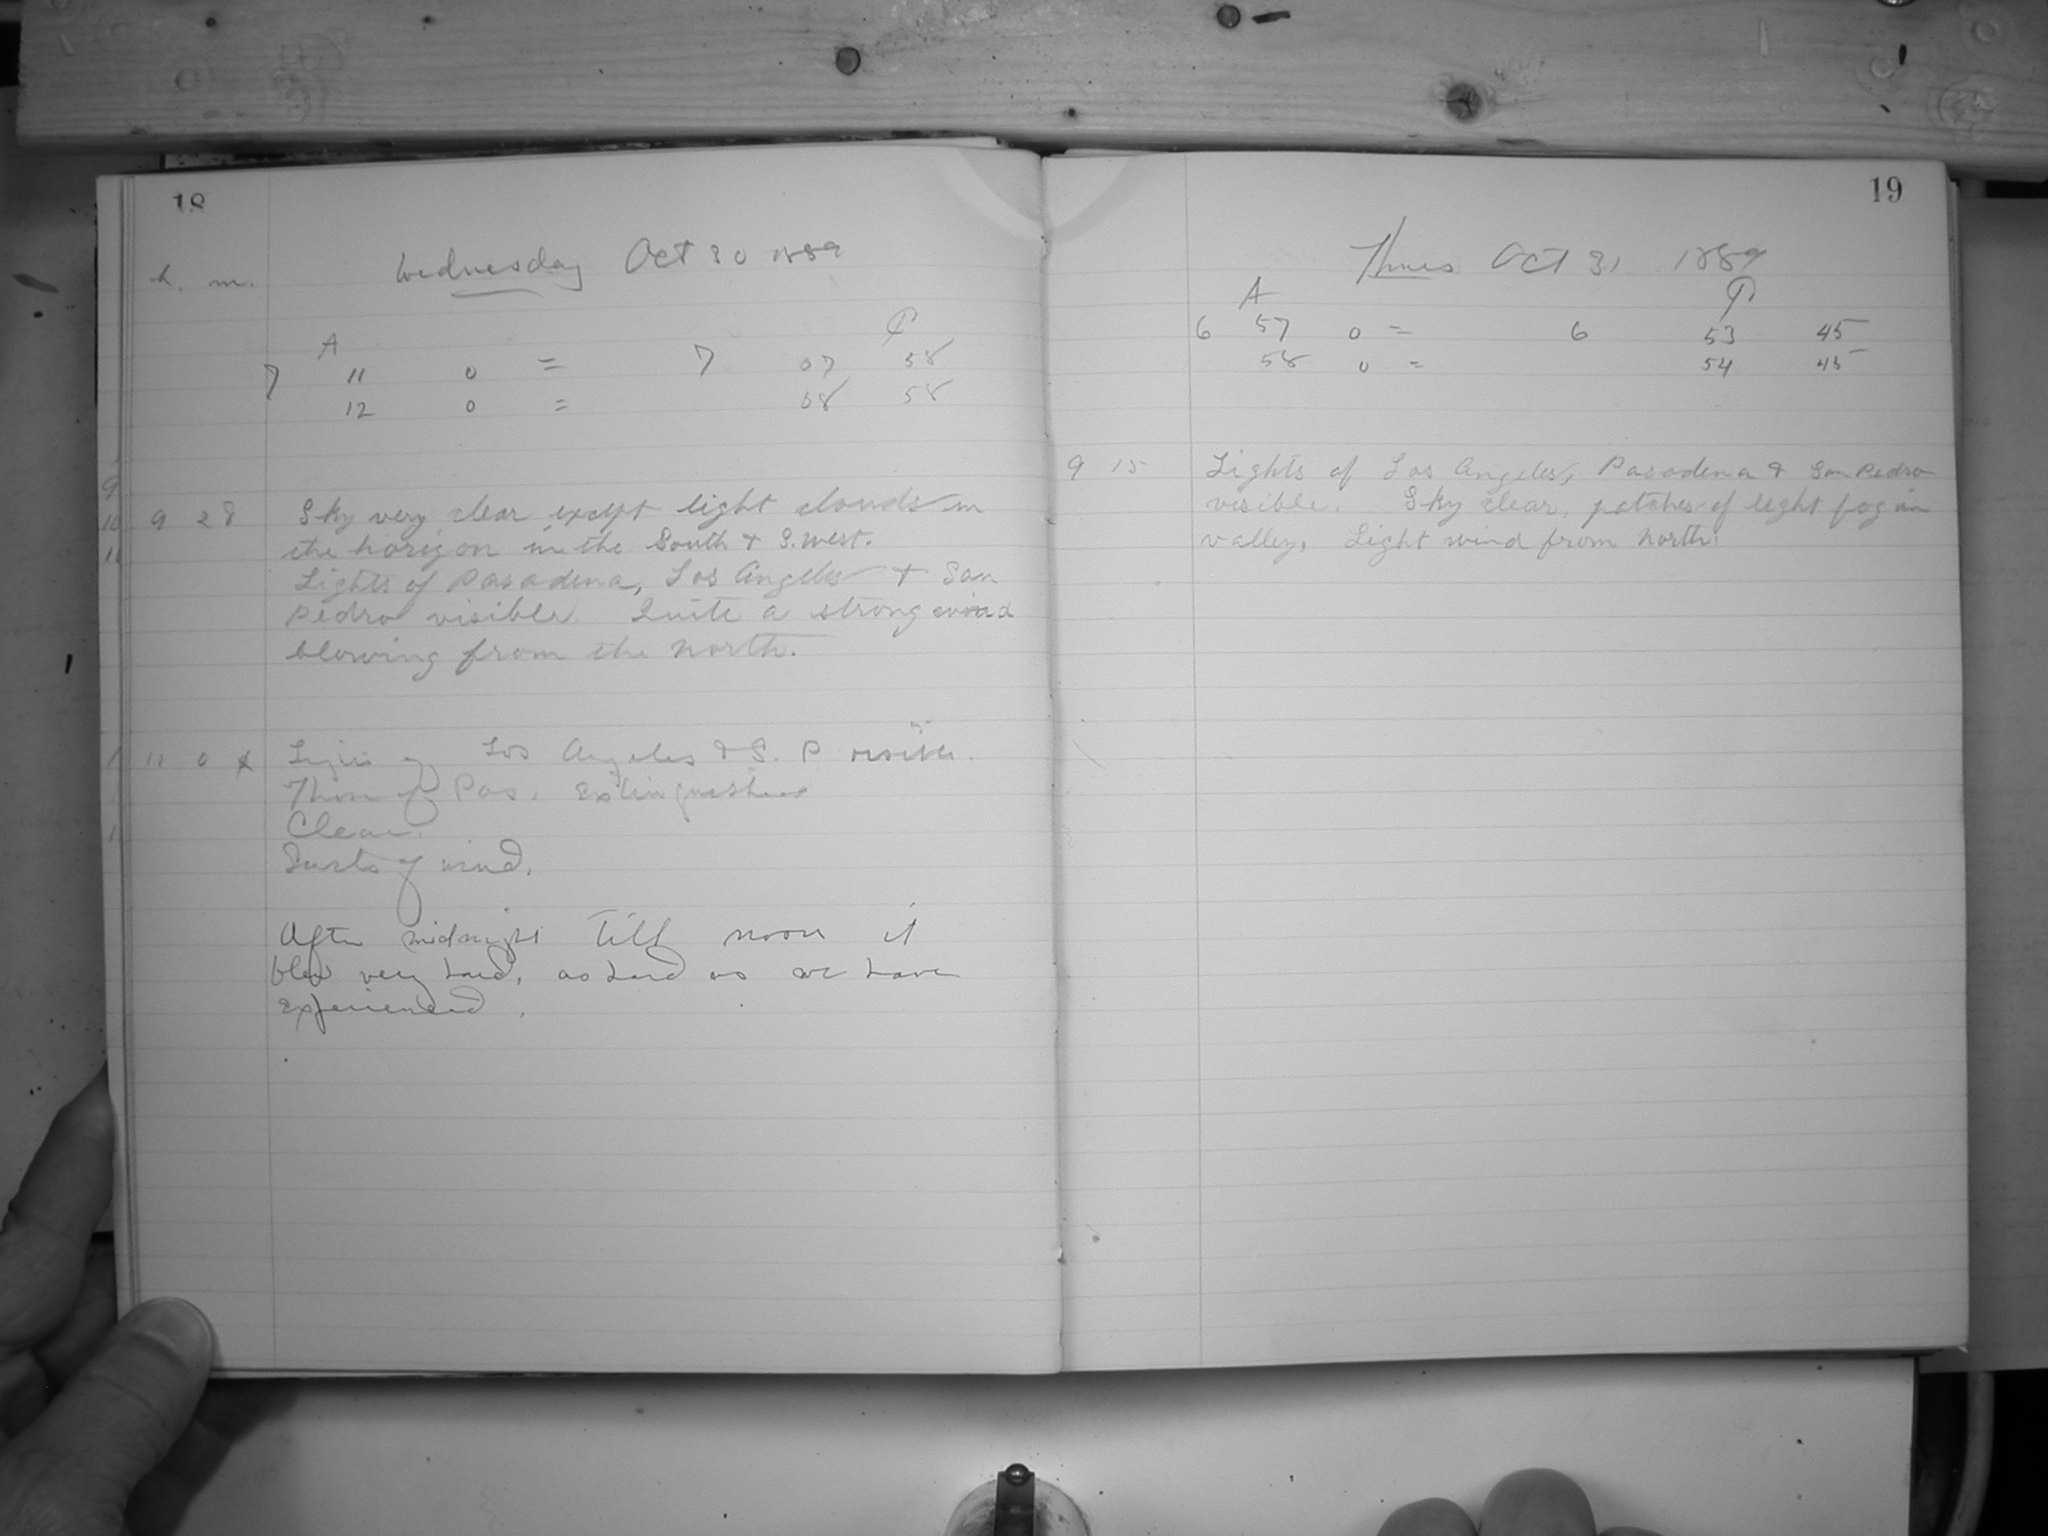 18
h. m.
Wednesday Oct 30 1889
A P
7 11 0 = 7 07 58
12 0 = 08 58
9
10
11
9 28 Sky very clear except light clouds in
the horizon in the South & S. West.
Lights of Pasadena, Los Angeles & San
Pedro visible. Quite a strong wind
blowing from the north.
11 0 Lights of Los Angeles & S. P visible.
Those of Pas. Extinguished
Clear.
Gusts of wind.
After midnight till noon it
blew very hard, as hard as we have
experienced.
19
Thurs Oct 31 1889
A P
6 57 0 = 6 53 45
58 0 = 54 45
9 15 Lights of Los Angeles, Pasadena & San Pedro
visible. Sky clear, patches of light fog in
valley, Light wind from north.